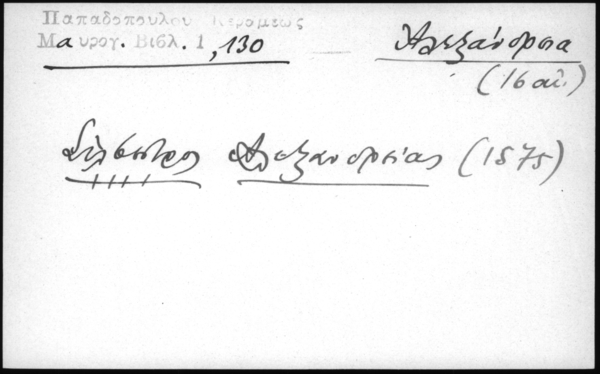 Παπαδοπουλου Κεραμεως
Μαυρογ. Βιβλ. 1, 130 — Ἀλεξάνδρεια
(16 αἰ.)
Σίλβεστρος Ἀλεξανδρείας (1575)